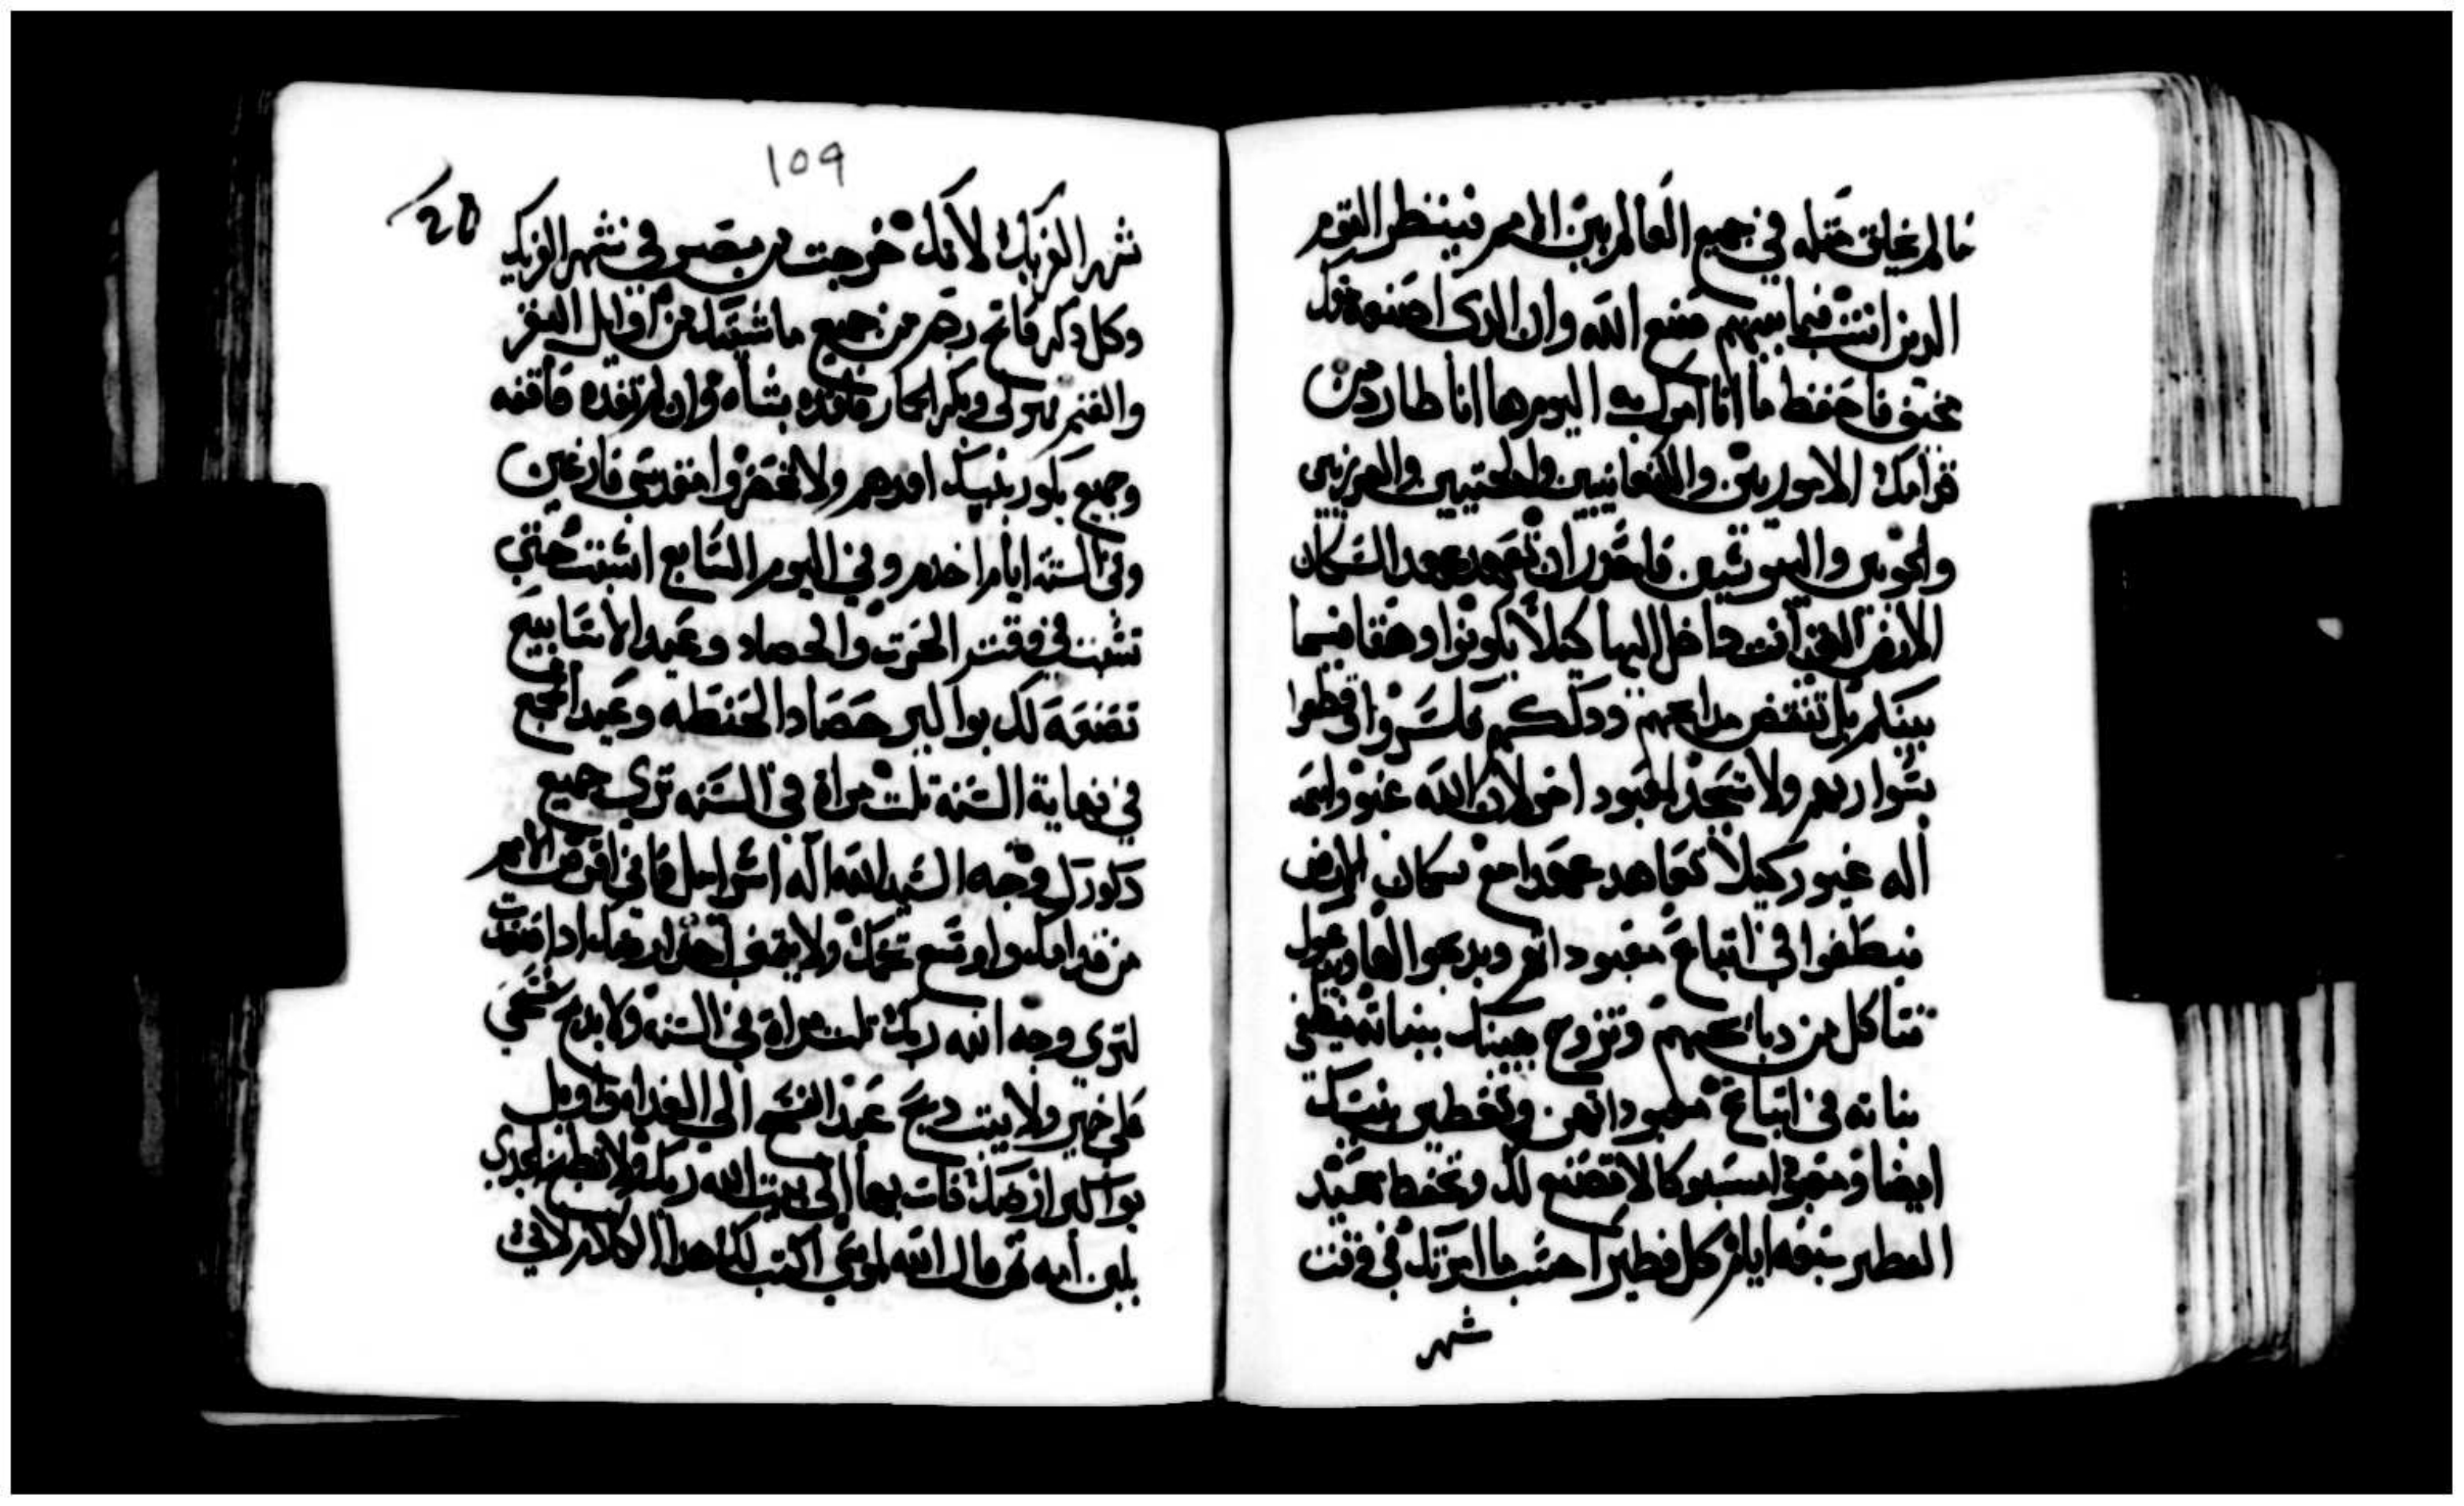 ما لم يخلق مثله في جميع العالم بين الامم فينظر القوم
الدين انت فيما بينهم صنع الله وان الدى اصنعه معك
مخوف فاحفظ ما انا آمرك به اليوم ها انا طارد من
قدامك الاموريين والكنعانيين والحتيين والفرزيين
والحويين واليبوسيين فاحدر ان تعهد عهد السكان
الارض التي أنت داخل اليها كيلا يكونوا وهقا فيما
بينكم بل تنقض مدابحهم ودككهم تكسروا واقطعوا
سواريهم ولا تسجد لمعبود اخر لان الله غيور اسمه
أله غيور كيلا تعاهد عهدا مع سكان الارض
فيطغوا في اتباع معبوداتهم ويدبحوا لها ويدعوك
فتاكل من دبائحهم وتزوج بنيك ببناته فيطغي
بناته في اتباع معبوداتهن وتخطين بنيك
ايضا ومعبودا مسبوكا لا تصنع لك وتحفط عيد
الفطير سبعة ايام كل فطيرا حسب ما امرتك في وقت
شهر
109
20
شهر الفريك لأنك خرجت من مصر في شهر الفريك
وكل دكر فاتح رحم من جميع ماشيتك من أوايل البقر
والغنم فهو لي وبكر الحمار فافده بشاه وان لم تفده فاقفه
وجميع بكور بنيك افدهم ولا تحضروا مقدسي فارغين
وفي الستة ايام اخدم وفي اليوم السابع اسبت حتي
تسبت في وقت الحرت والحصاد وعيد الأسابيع
تصنعه لك بواكير حصاد الحنطه وعيد الجمع
في نهاية السنه تلت مراة في السنه تري جميع
دكورك وجه السيد الله اله اسرايل فاني اقرض الامم
من قدامك واوسع تخمك ولا يتمنى احد ارضك ادا صعدت
لترى وجه الله ربك تلت مراة في السنه ولا تدبح فسحي
علي خمير ولا يبت دبيح عيد الفسح الي الغداه واوايل
بواكير ارضك فأت بها الى بيت الله ربك ولا تطبخ الجدي
بلبن أمه تم قال الله لموسي اكتب لك هدا الكلام لاني